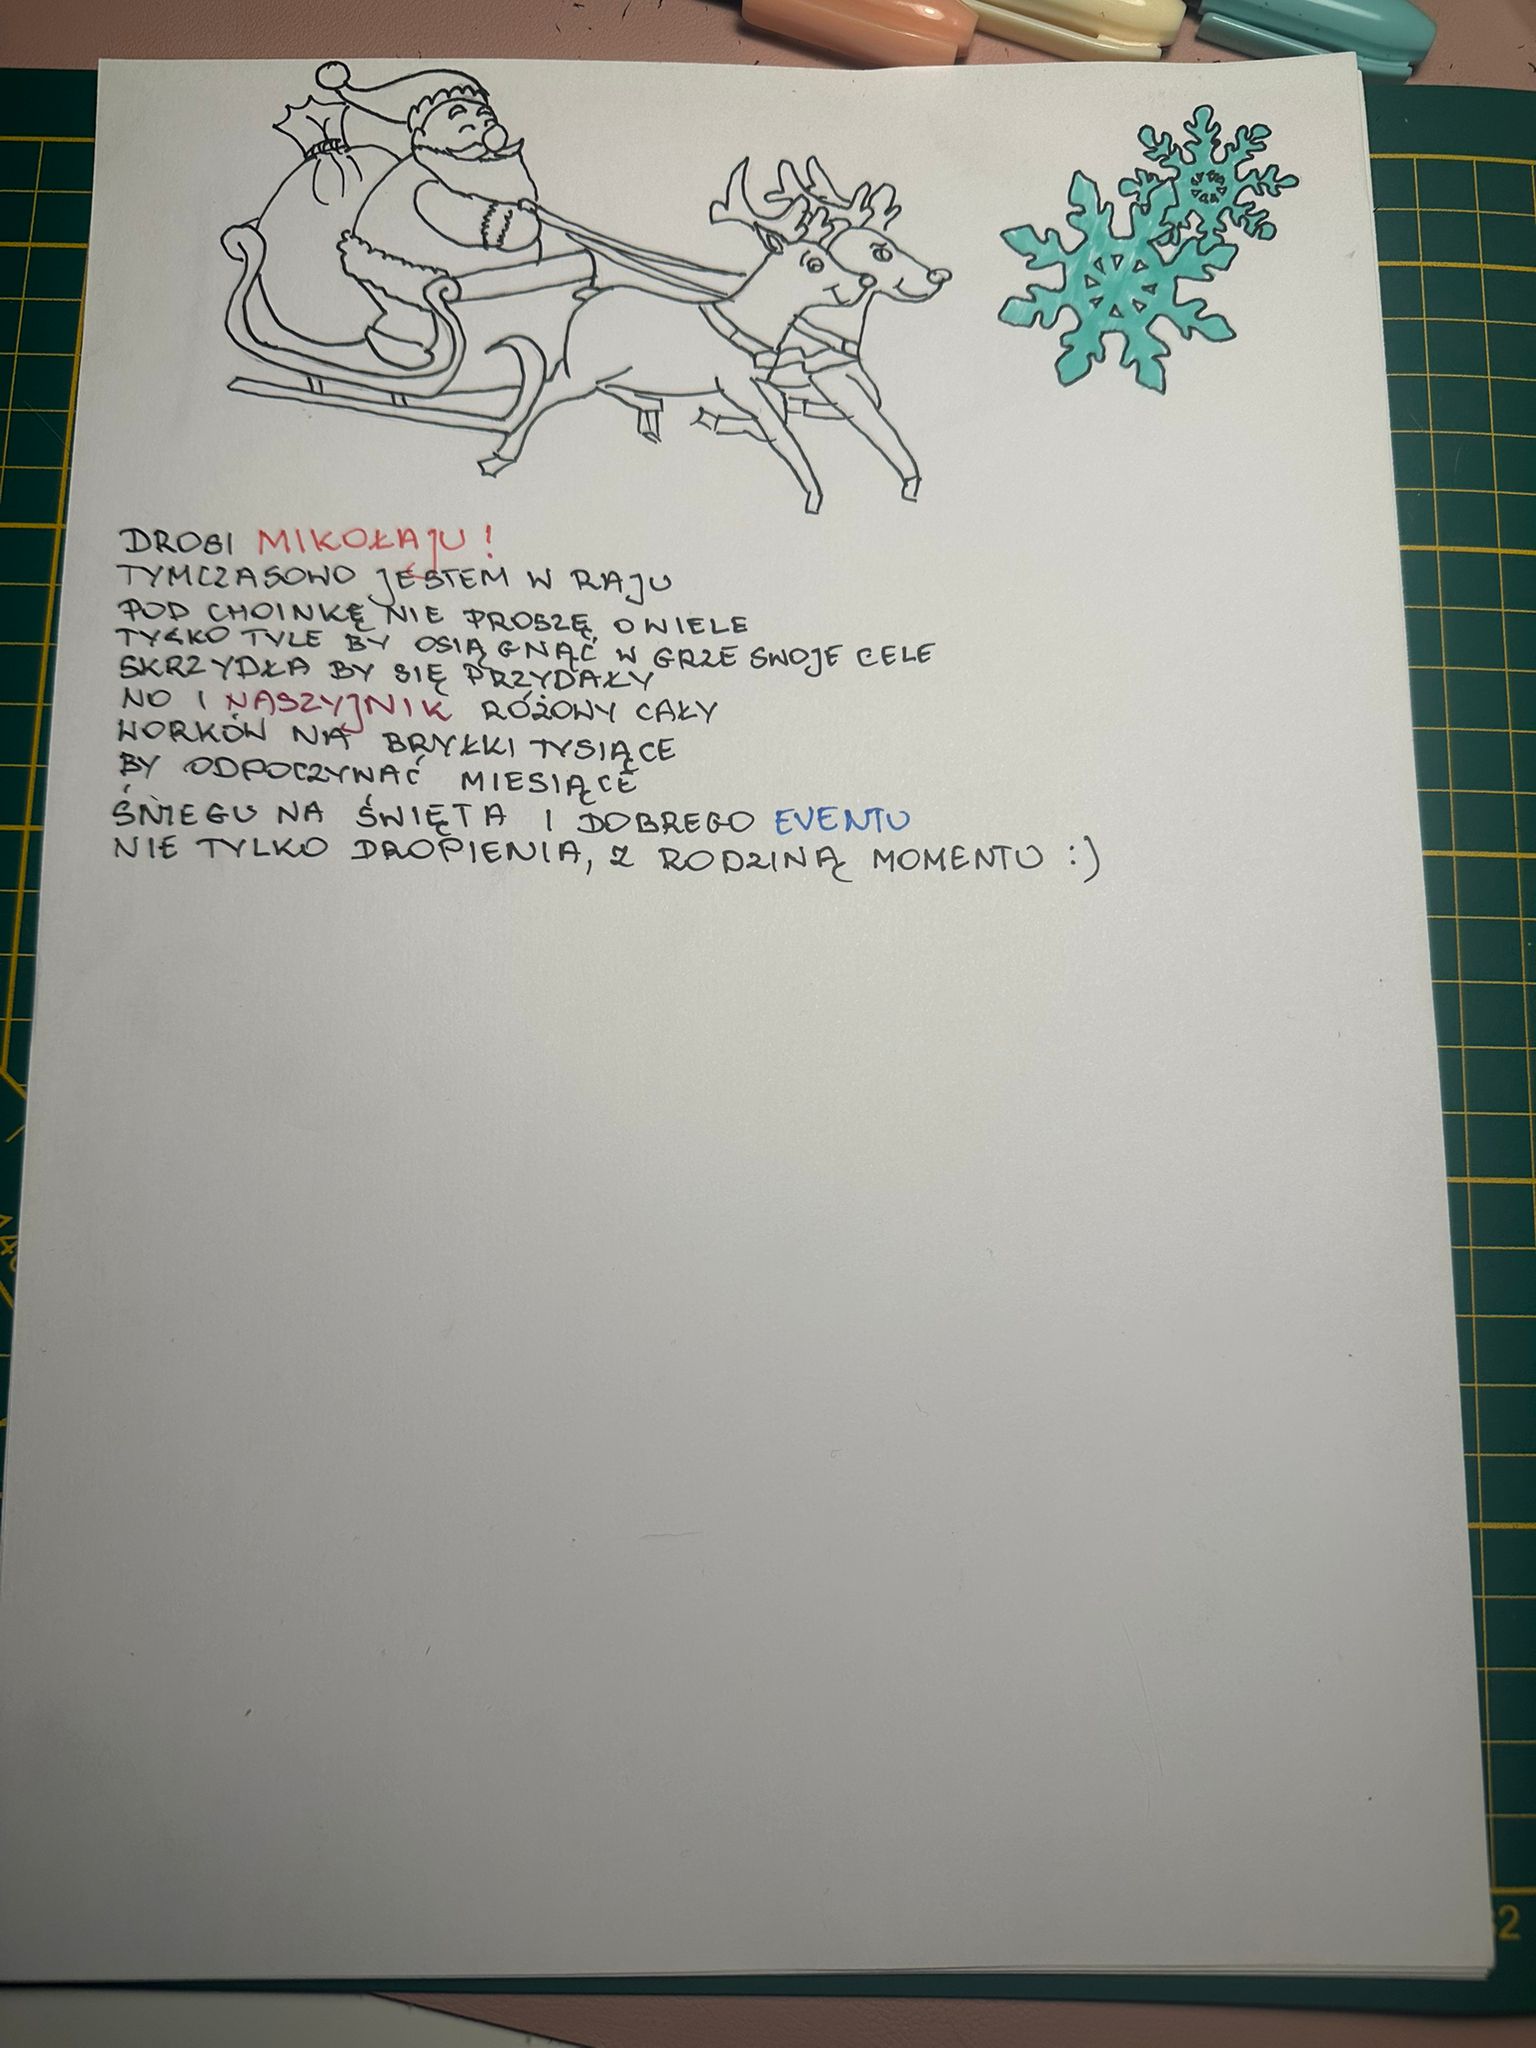 DROGI MIKOŁAJU!
TYMCZASOWO JESTEM W RAJU
POD CHOINKĘ NIE PROSZĘ O WIELE
TYLKO TYLE BY OSIĄGNĄĆ W GRZE SWOJE CELE
SKRZYDŁA BY SIĘ PRZYDAŁY
NO I NASZYJNIK RÓŻOWY CAŁY
WORKÓW NA BRYŁKI TYSIĄCE
BY ODPOCZYWAĆ MIESIĄCE
ŚNIEGU NA ŚWIĘTA I DOBREGO EVENTU
NIE TYLKO DROPIENIA, Z RODZINĄ MOMENTU :)